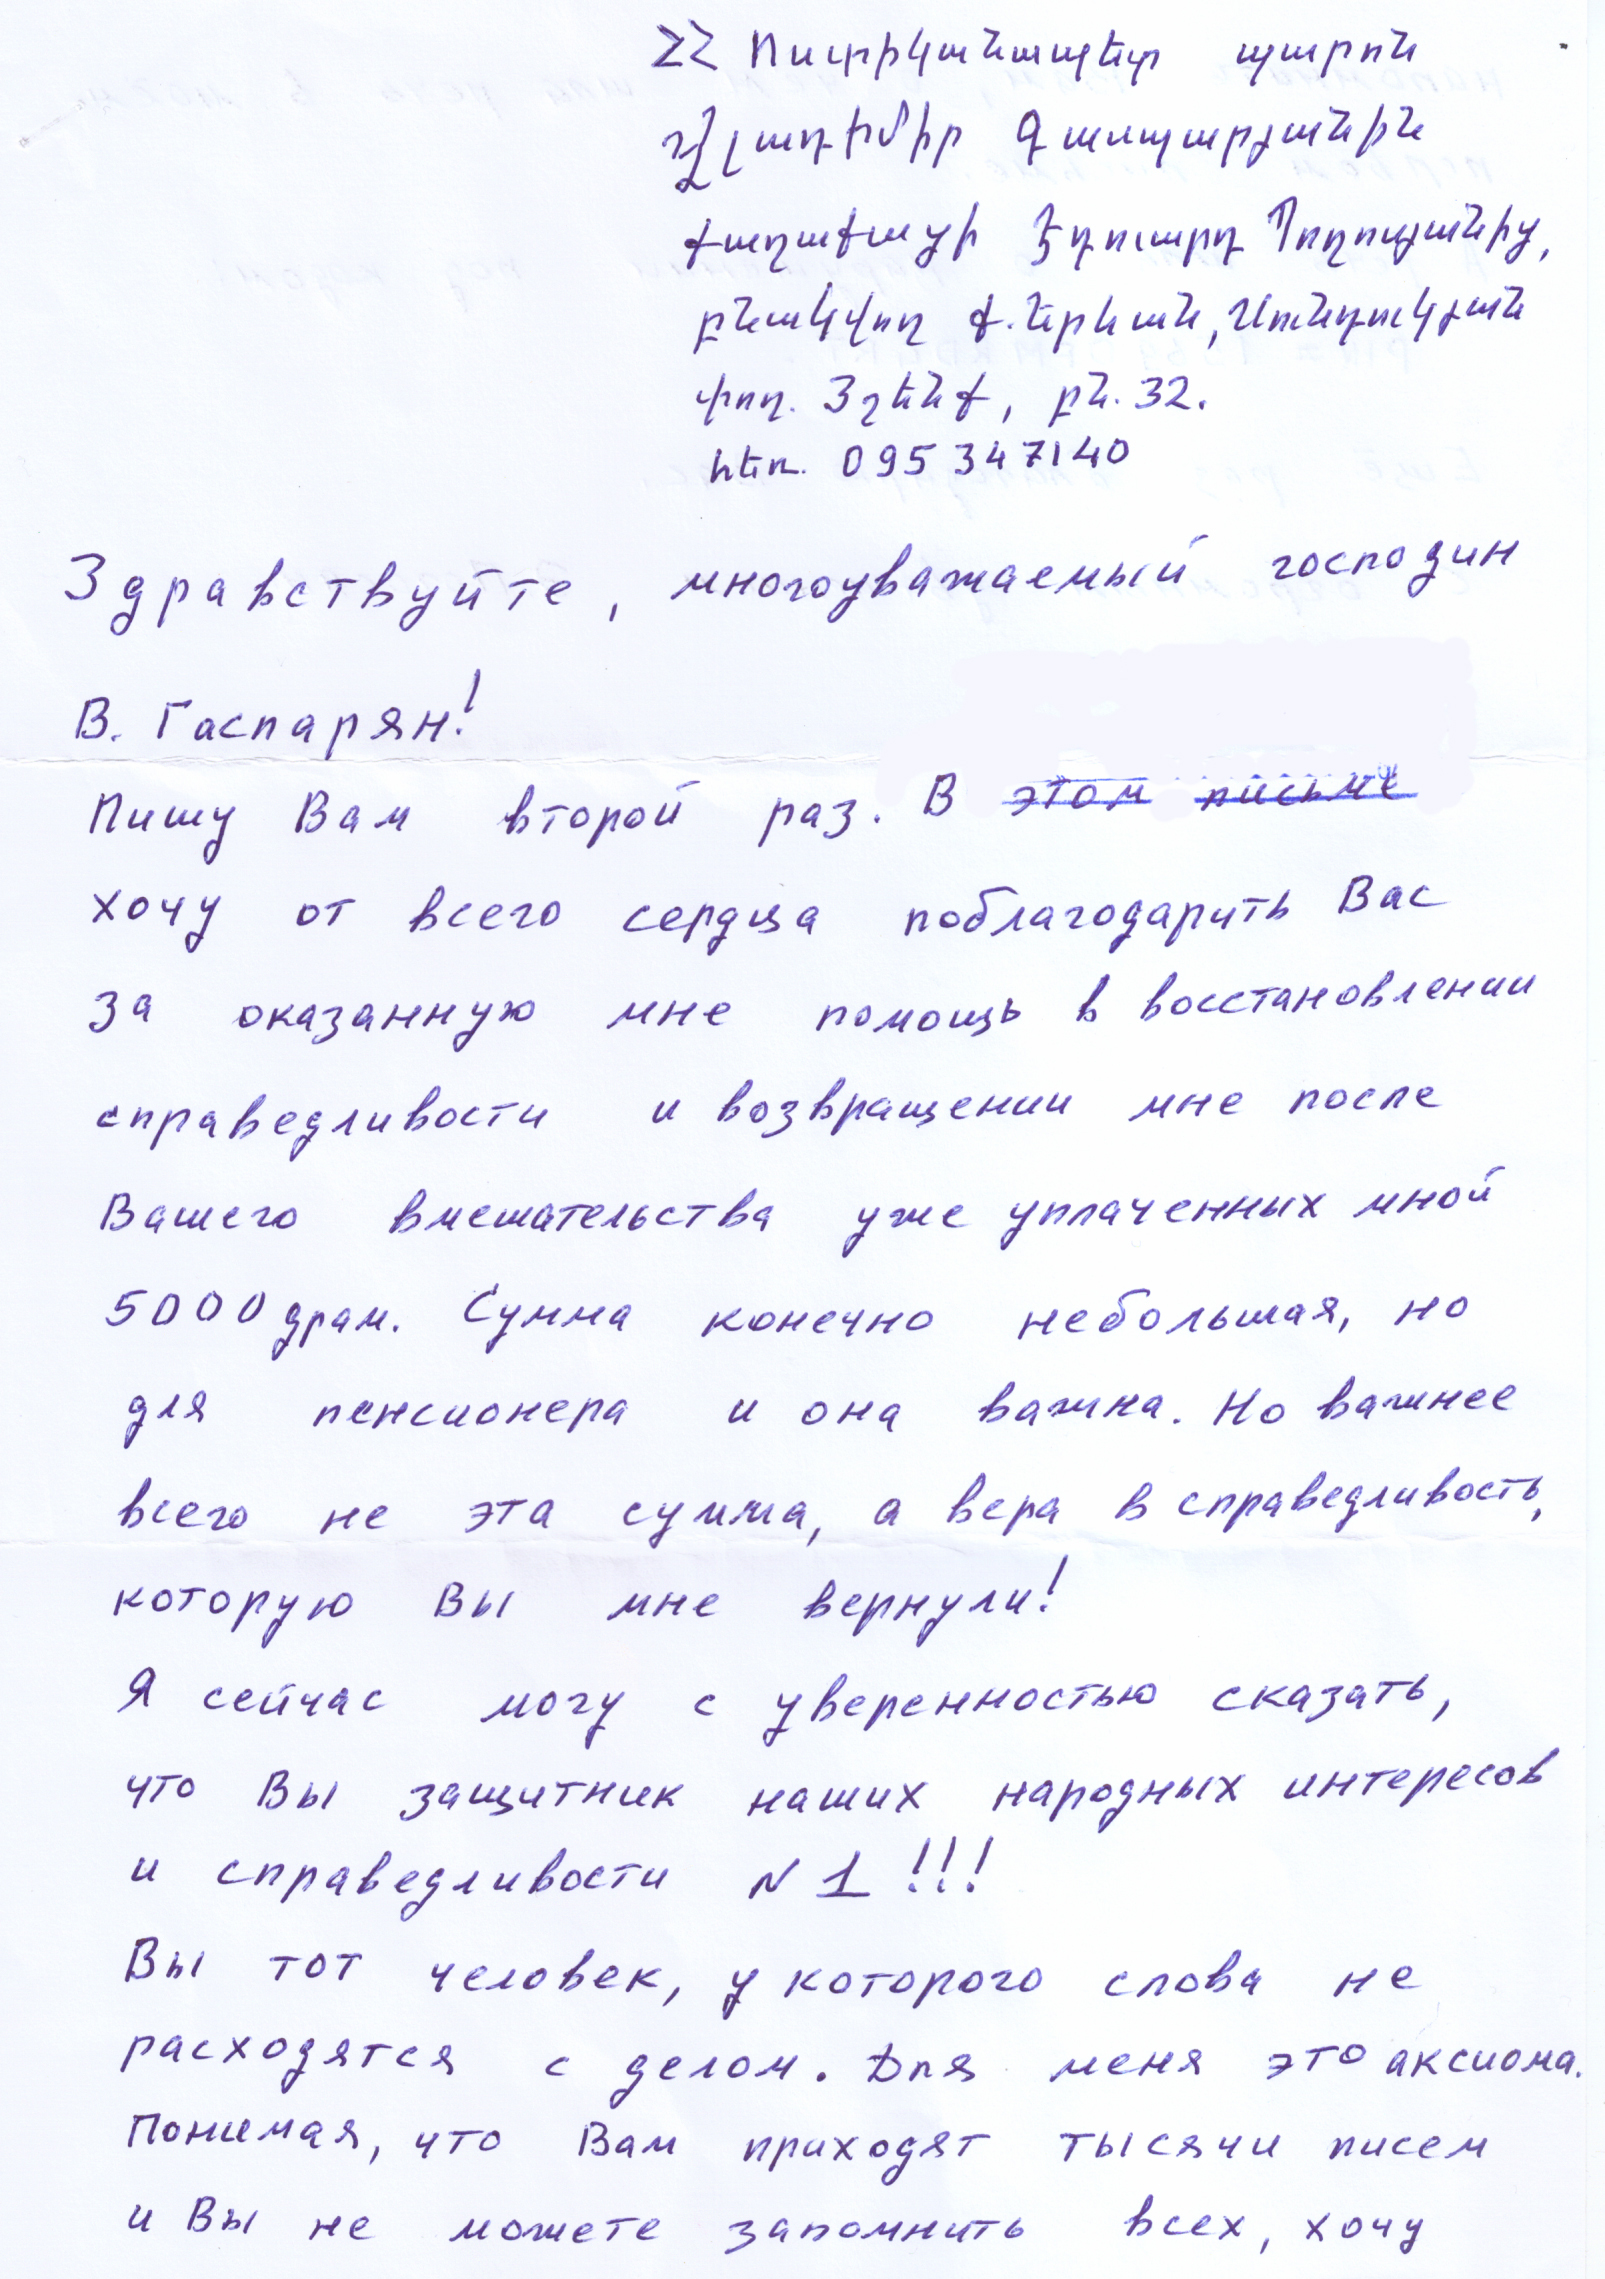 ՀՀ Ոստիկանապետ պարոն
Վլադիմիր Գասպարյանին
քաղաքացի Էդուարդ Պողոսյանից,
բնակվող ք. Երևան, Սունդուկյան
փող. 3 շենք, բն. 32.
հեռ. 095 347140
Здравствуйте, многоуважаемый господин
В. Гаспарян!
Пишу Вам второй раз. В этом письме
хочу от всего сердца поблагодарить Вас
за оказанную мне помощь в восстановлении
справедливости и возвращении мне после
Вашего вмешательства уже уплаченных мной
5000 драм. Сумма конечно небольшая, но
для пенсионера и она важна. Но важнее
всего не эта сумма, а вера в справедливость,
которую Вы мне вернули!
Я сейчас могу с уверенностью сказать,
что Вы защитник наших народных интересов
и справедливости N 1 !!!
Вы тот человек, у которого слова не
расходятся с делом. Для меня это аксиома.
Понимая, что Вам приходят тысячи писем
и Вы не можете запомнить всех, хочу